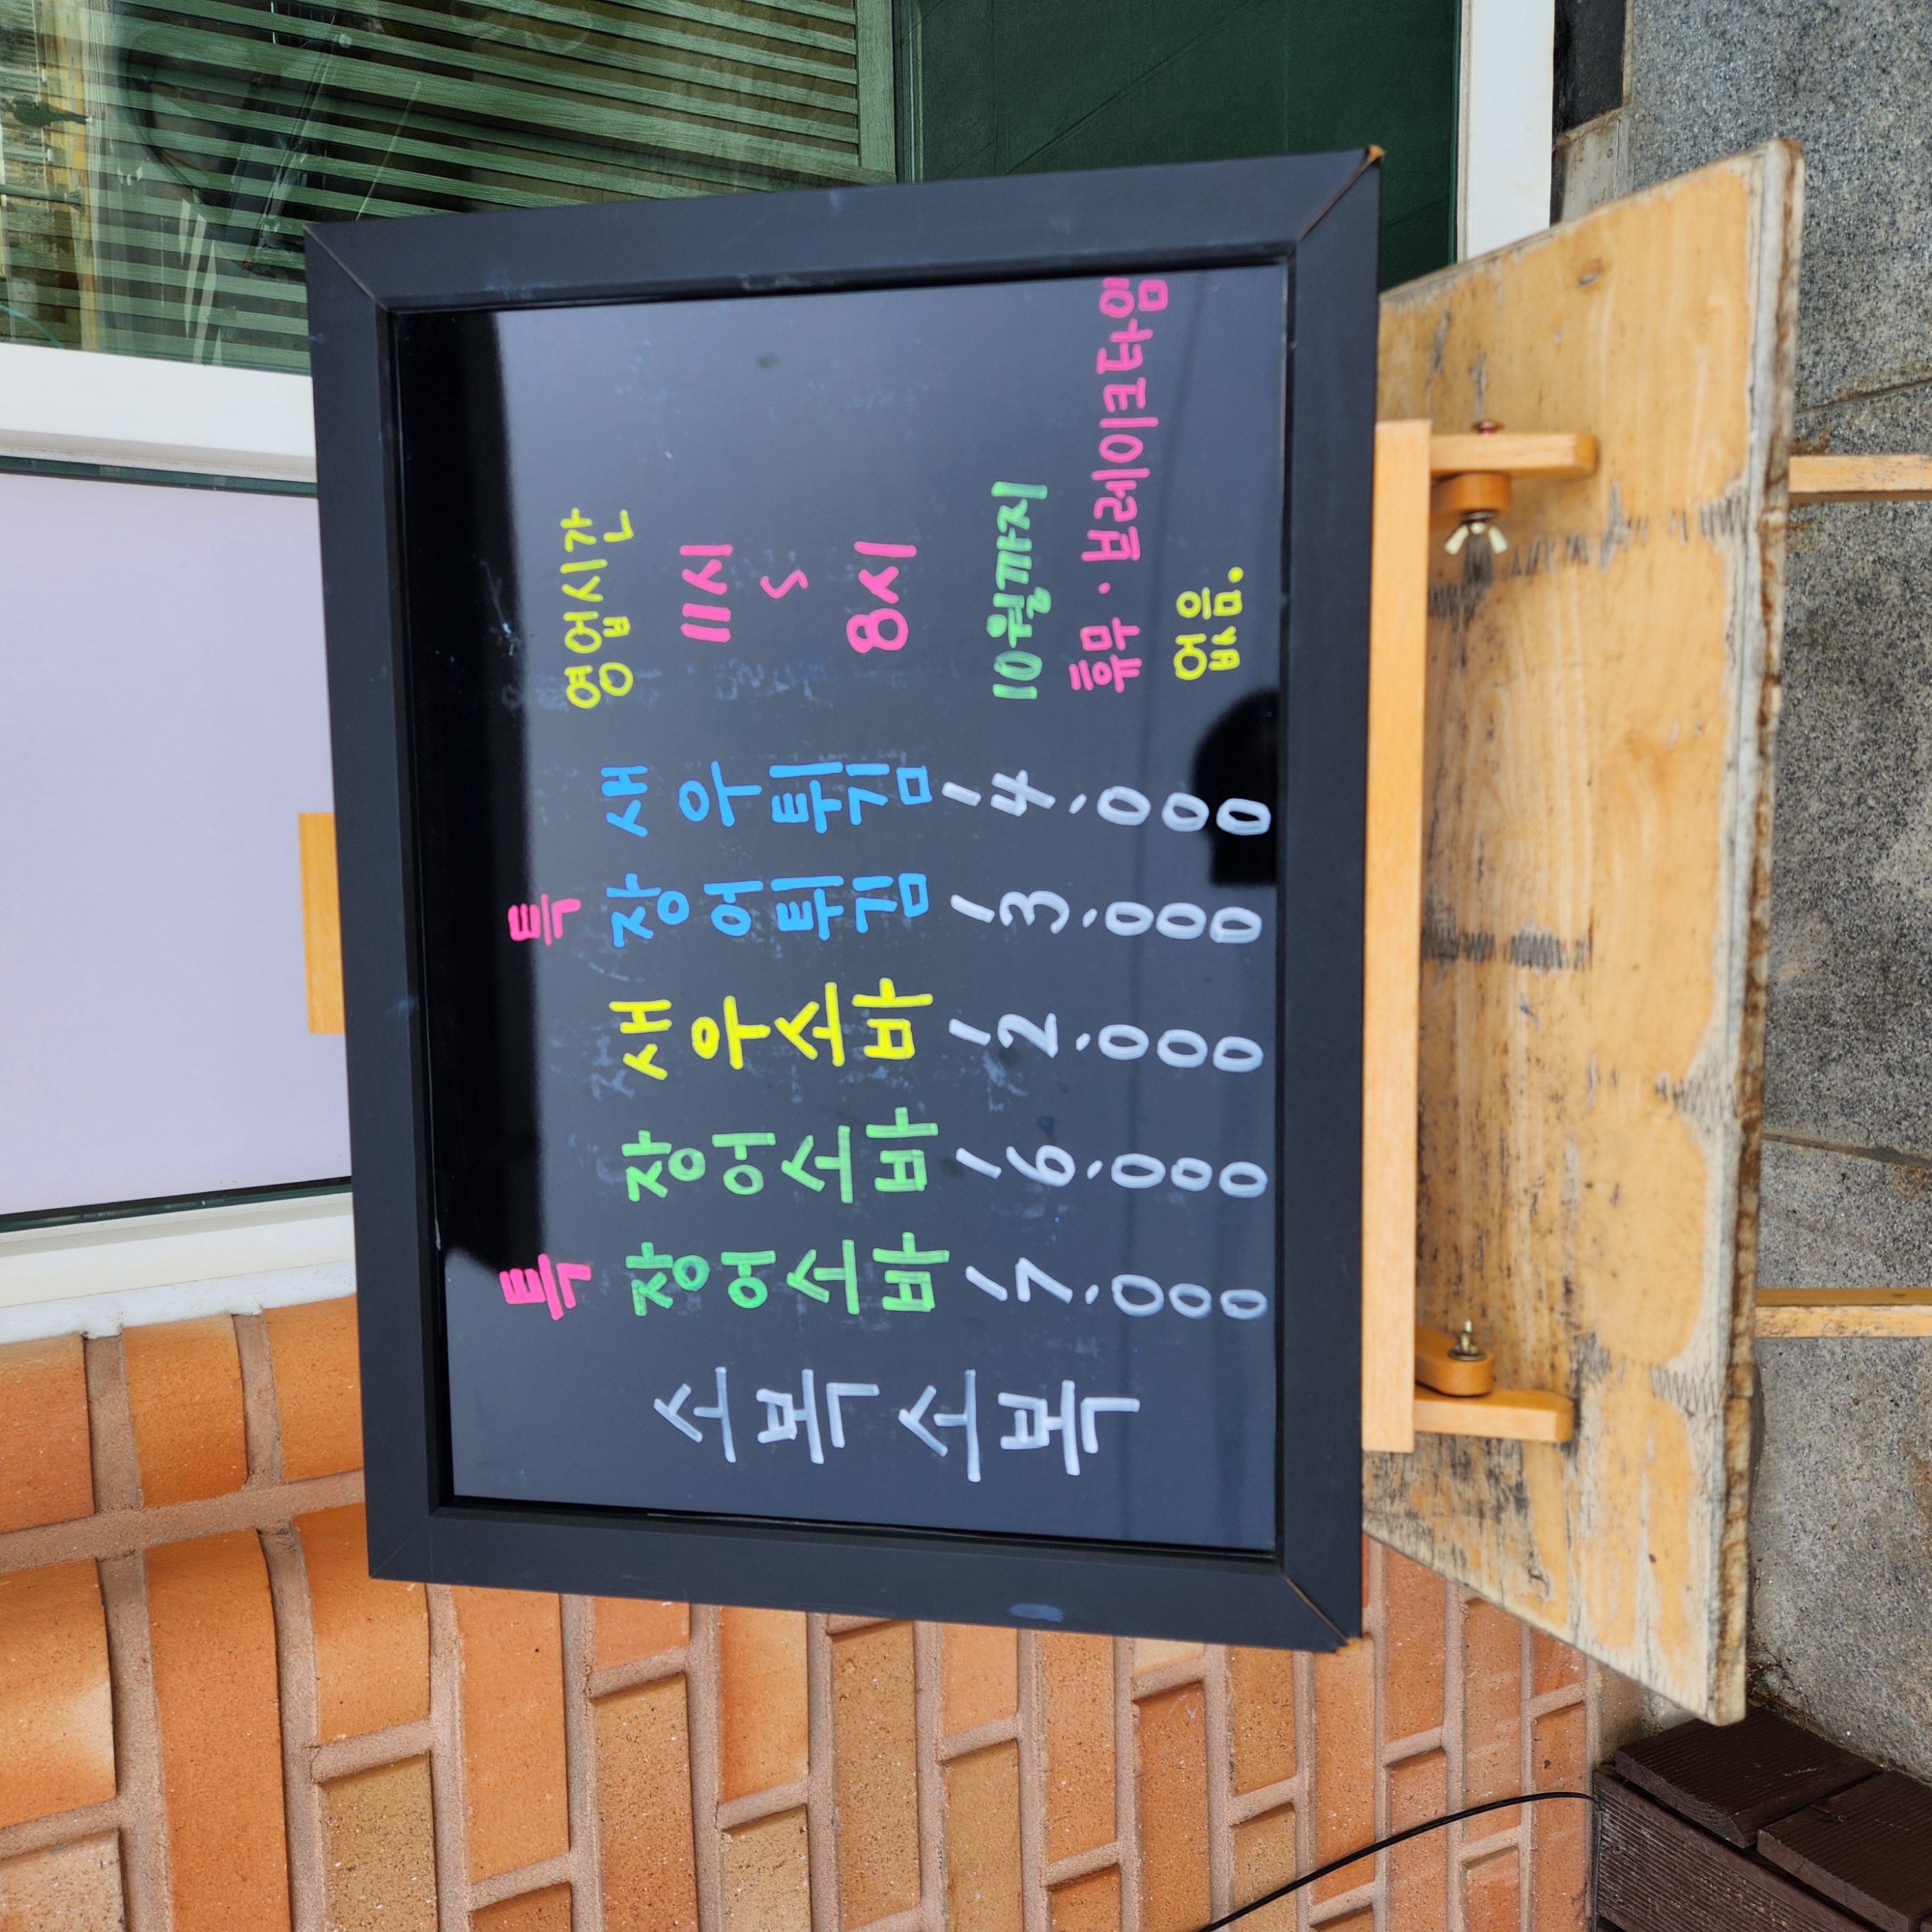 소복소복
특 장어소바 17,000
장어소바 16,000
새우소바 12,000
특 장어튀김 13,000
새우튀김 14,000
영업시간
11시
~
8시
10월까지
휴무 · 브레이크타임
없음.